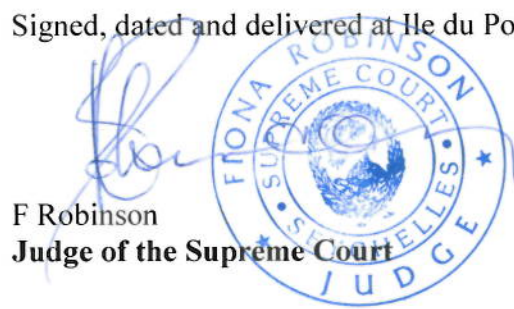 Signed, dated and delivered at Ile du Po
FIONA ROBINSON
SUPREME COURT
SEYCHELLES
JUDGE
F Robinson
Judge of the Supreme Court